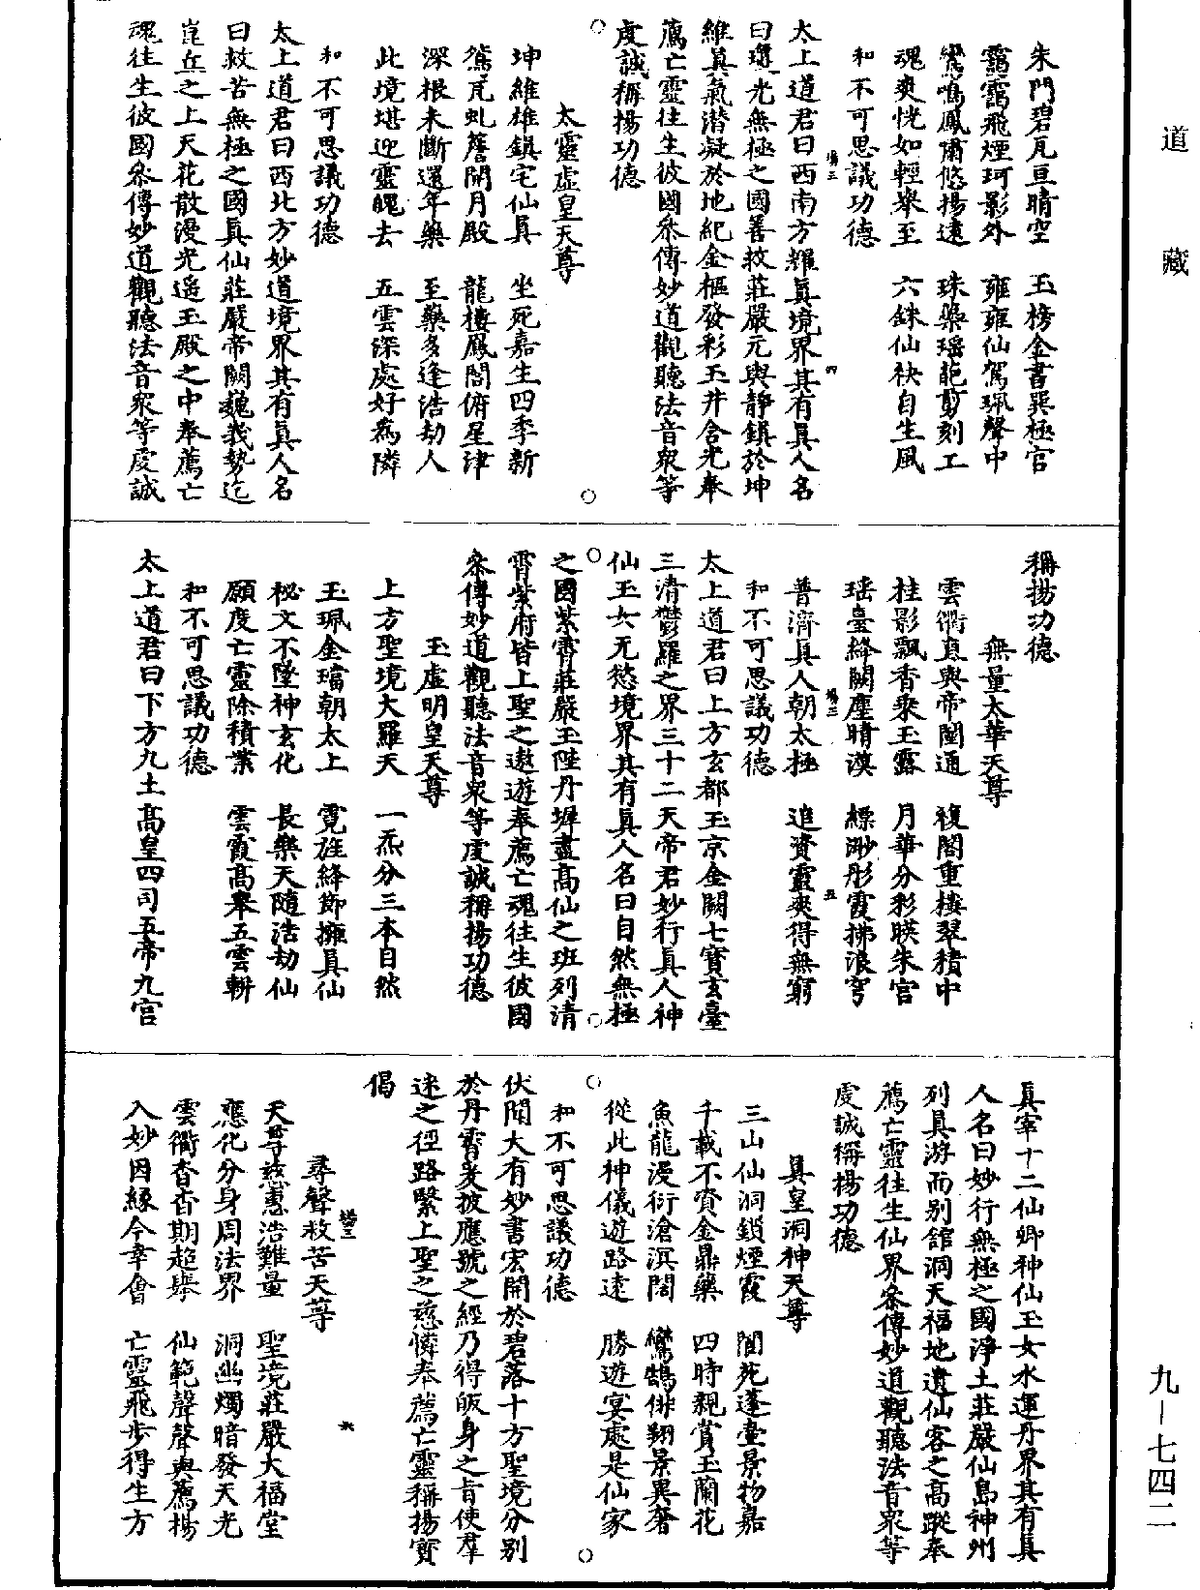 道藏
九—七四二
朱門碧瓦亘晴空　玉榜金書巽極宮
靄靄飛煙珂影外　雍雍仙駕珮聲中
鸞鳴鳳嘯悠揚遠　珠蘂瑶葩剪刻工
魂爽恍如輕舉至　六銖仙袂自生風
和不可思議功德
太上道君曰西南方耀真境界其有真人名
曰瓊光無極之國善救莊嚴元輿靜鎮於坤
維真氣潛凝於地紀金樞發彩玉井含光奉
薦亡靈往生彼國叅傳妙道觀聽法音衆等
虔誠稱揚功德
太靈虛皇天尊
坤維雄鎮宅仙真　坐死嘉生四季新
鴛瓦虬簷開月殿　龍樓鳳閣俯星津
深根未斷還年藥　至藥多逢浩劫人
此境堪迎靈魄去　五雲深處好為隣
和不可思議功德
太上道君曰西北方妙道境界其有真人名
曰救苦無極之國真仙莊嚴帝闕巍峩勢迄
崑丘之上天花散漫光遥玉殿之中奉薦亡
魂往生彼國叅傳妙道觀聽法音衆等虔誠
稱揚功德
無量太華天尊
雲衢直與帝閽通　複閣重樓翠積中
桂影飄香來玉露　月華分彩暎朱宮
瑶臺絳闕塵晴漠　縹渺彤霞拂浪穹
普濟真人朝太極　追資靈爽得無窮
和不可思議功德
太上道君曰上方玄都玉京金闕七寶玄臺
三清鬱羅之界三十二天帝君妙行真人神
仙玉女无愁境界其有真人名曰自然無極
之國紫霄莊嚴玉陛丹墀盡高仙之班列清
霄紫府皆上聖之遨遊奉薦亡魂往生彼國
叅傳妙道觀聽法音衆等虔誠稱揚功德
玉虛明皇天尊
上方聖境大羅天　一炁分三本自然
玉珮金璫朝太上　霓旌絳節擁真仙
秘文不墜神玄化　長樂天隨浩劫仙
願度亡靈除積業　雲霞高舉五雲軿
和不可思議功德
太上道君曰下方九土高皇四司五帝九宮
真宰十二仙卿神仙玉女水運丹界其有真
人名曰妙行無極之國淨土莊嚴仙島神州
列真游而别館洞天福地遺仙客之高蹤奉
薦亡靈往生仙界叅傳妙道觀聽法音衆等
虔誠稱楊功德
真皇洞神天尊
三山仙洞鎖煙霞　閬苑蓬壺景物嘉
千載不賫金鼎藥　四時親賞玉蘭花
魚龍漫衍滄溟闊　鸞鵠徘翔景異奢
從此神儀遊路逺　勝遊宴處是仙家
和不可思議功德
伏聞大有妙書宏開於碧落十方聖境分别
於丹霄爰披應號之經乃得皈身之旨使羣
迷之徑路緊上聖之慈憐奉薦亡靈稱揚寳
偈
尋聲救苦天尊
天尊慈惠浩難量　聖境莊嚴大福堂
應化分身周法界　洞幽燭暗發天光
雲衢杳杳期超舉　仙範聲聲與薦楊
入妙因緣今幸會　亡靈飛步得生方